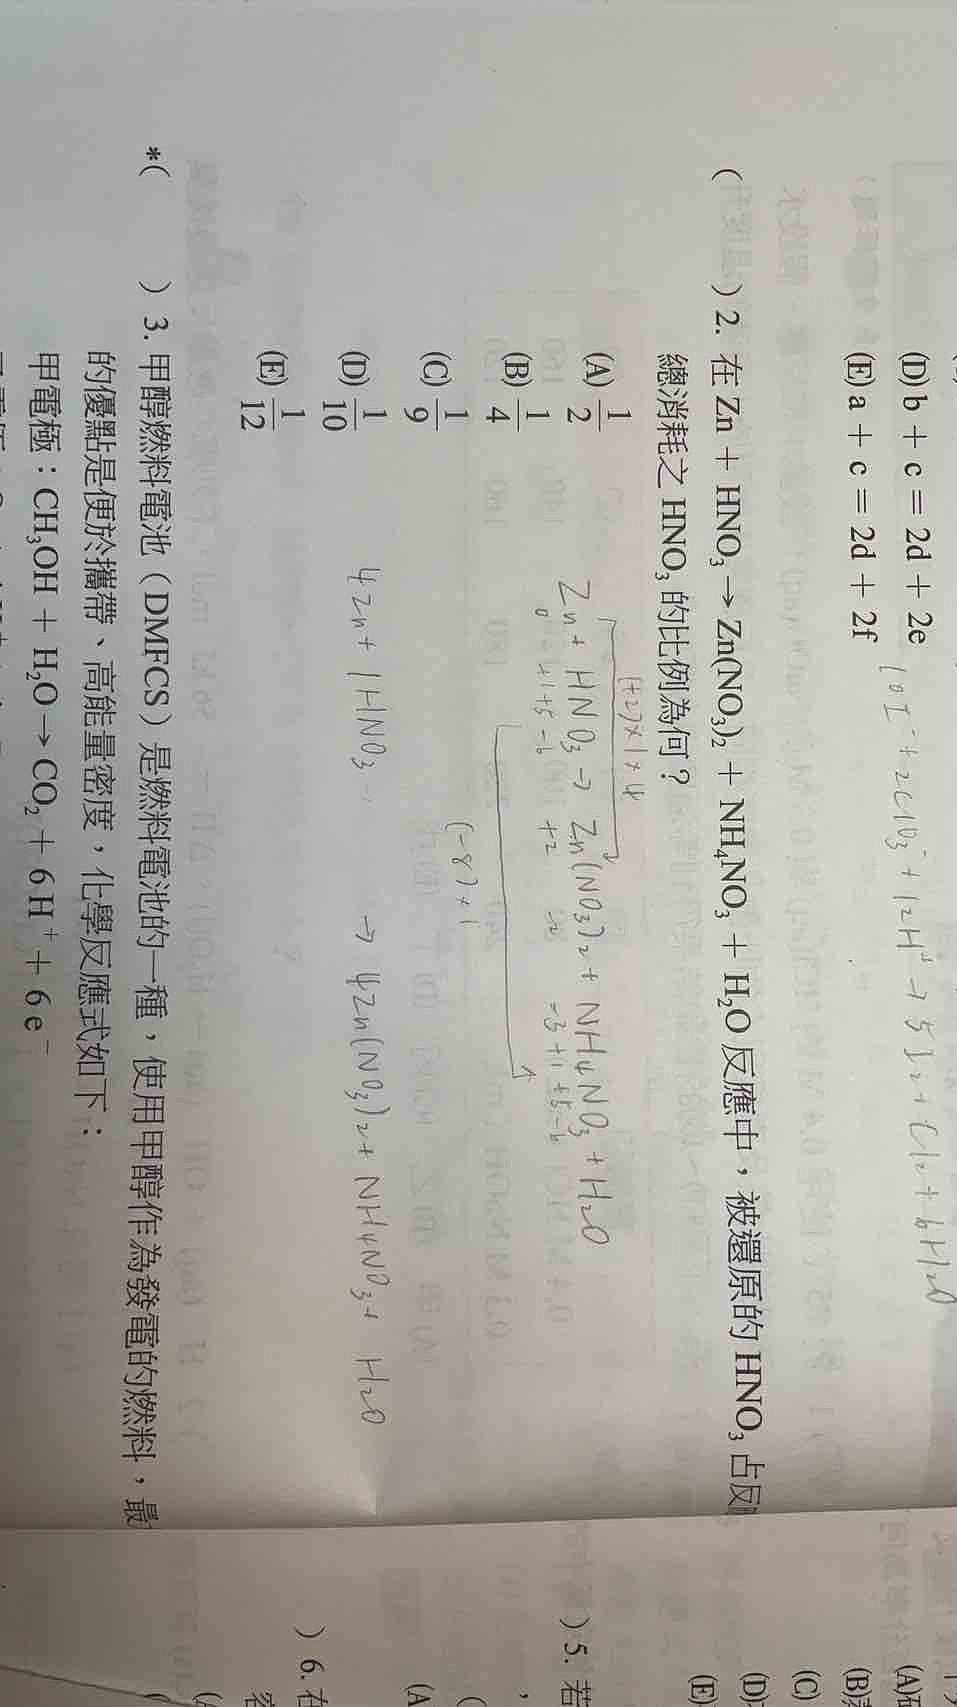 (D) b + c = 2d + 2e
(E) a + c = 2d + 2f
10I⁻ + 2ClO₃⁻ + 12H⁺ → 5I₂ + Cl₂ + 6H₂O
( ) 2. 在 Zn + HNO₃ → Zn(NO₃)₂ + NH₄NO₃ + H₂O 反應中，被還原的 HNO₃ 占反
總消耗之 HNO₃ 的比例為何？
(A) 1/2
(B) 1/4
(C) 1/9
(D) 1/10
(E) 1/12
(+2)×1×4
Zn + HNO₃ → Zn(NO₃)₂ + NH₄NO₃ + H₂O
0 +1+5-6 +2 -3+1+5-6
(-8)×1
4Zn + 1HNO₃ → 4Zn(NO₃)₂ + NH₄NO₃ + H₂O
*( ) 3. 甲醇燃料電池（DMFCS）是燃料電池的一種，使用甲醇作為發電的燃料，最
的優點是便於攜帶、高能量密度，化學反應式如下：
甲電極：CH₃OH + H₂O → CO₂ + 6H⁺ + 6e⁻
(A)
(B)
(C)
(D)
(E)
) 5. 若
(A
) 6. 在